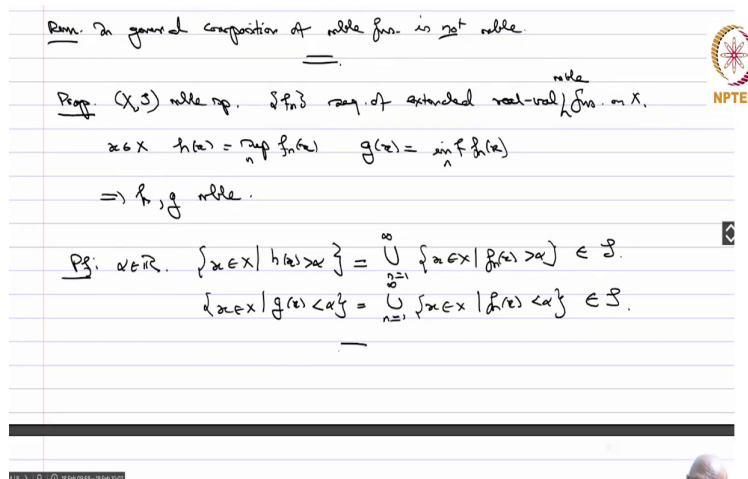 Rem. In general composition of mble fns. is not mble.
mble
Prop. (X, S) mble sp. {fn} seq. of extended real-val fns. on X.
NPTE
x∈X h(x) = sup_n fn(x) g(x) = inf_n fn(x)
=> h, g mble.
Pf: α∈ℝ. {x∈X | h(x) > α} = ∪_{n=1}^∞ {x∈X | fn(x) > α} ∈ S.
{x∈X | g(x) < α} = ∪_{n=1}^∞ {x∈X | fn(x) < α} ∈ S.